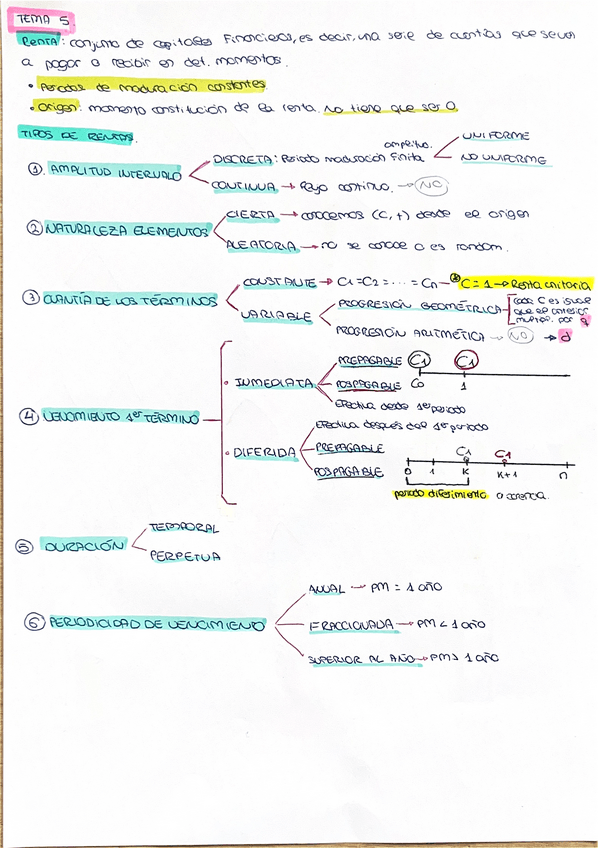 TEMA 5
RENTA: conjunto de capitales financieros, es decir, una serie de cuantías que se van
a pagar o recibir en det. momentos.
• Periodos de maduración constantes.
• Origen: momento constitución de la renta. No tiene que ser 0.
TIPOS DE RENTAS.
① AMPLITUD INTERVALO
DISCRETA: Periodo maduración finita
amplitud.
UNIFORME
NO UNIFORME
CONTINUA → flujo continuo. → NO
② NATURALEZA ELEMENTOS
CIERTA → conocemos (C, t) desde el origen
ALEATORIA → no se conoce o es random.
③ CUANTÍA DE LOS TÉRMINOS
CONSTANTE → C1 = C2 = ... = Cn — * C = 1 → Renta unitaria
VARIABLE
PROGRESIÓN GEOMÉTRICA
cada C es igual
que el anterior
multipl. por q
PROGRESIÓN ARITMÉTICA → NO → d
④ VENCIMIENTO 1er TÉRMINO
• INMEDIATA
PREPAGABLE
POSPAGABLE
Efectiva desde 1er periodo
C1 C1
C0 1
• DIFERIDA
Efectiva después del 1er periodo
PREPAGABLE
POSPAGABLE
C1 C1
0 1 K K+1 n
periodo diferimiento o carencia.
⑤ DURACIÓN
TEMPORAL
PERPETUA
⑥ PERIODICIDAD DE VENCIMIENTO
ANUAL → PM = 1 año
FRACCIONADA → PM < 1 año
SUPERIOR AL AÑO → PM > 1 año